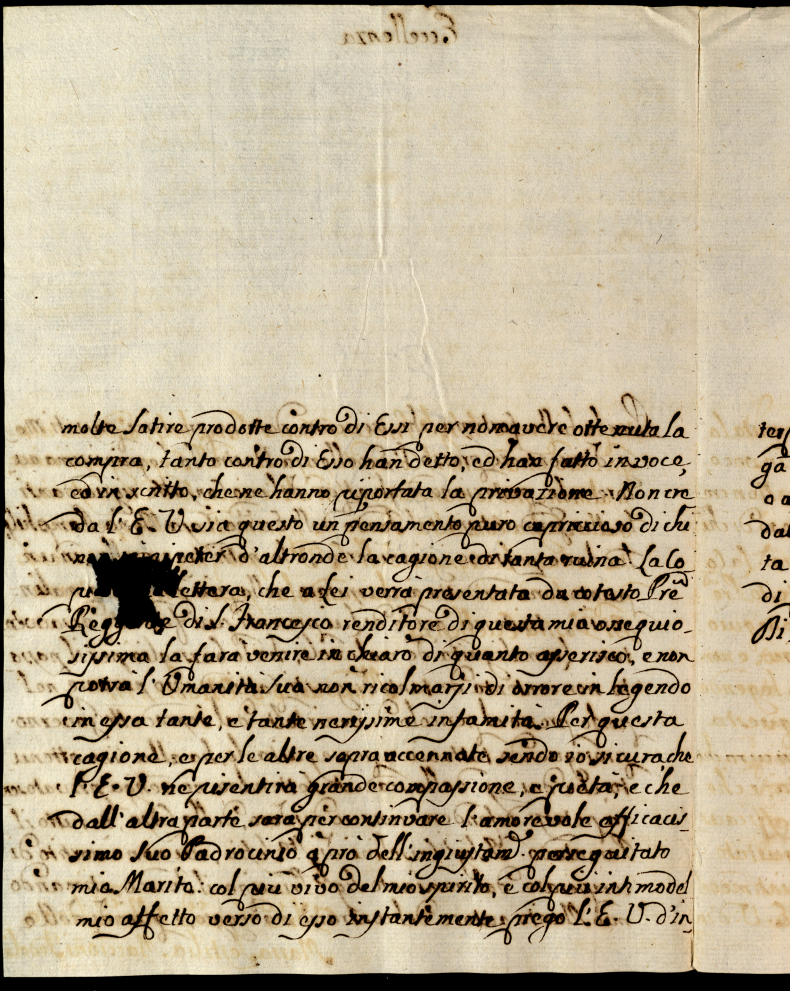 Eccellenza
molte Satire prodotte contro di Essi per non avere ottenuta la
compra, tanto contro di Esso han detto, ed han fatto in voce,
ed in scritto, che ne hanno riportata la privazione. Non cre
da l'E. V. sia questo un pensamento puro capriccioso di chi
non d'altronde la cagione di tanta ruina. La Co
lettera, che a Lei verrà presentata da cotesto Pre
Reggente di S. Francesco renditore di questa mia ossequio-
sissima la farà venire in chiaro di quanto asserisco, e non
potrà l'Umanità sua non ricolmarsi di orrore in legendo
in essa tante, e tante nerissime infamità. Per questa
cagione, e per le altre sopra accennate, sendo io sicura che
l'E. V. ne risentirà grande compassione, e pietà, e che
dall'altra parte sarà per continuare l'amorevole efficacis-
simo suo Padrocinio a pro dell'ingiustam. perseguitato
mio Marito: col più vivo del mio spirito, e col più intimo del
mio affetto verso di esso instantemente priego l'E. V. d'in
ga
o a
dal
ta
di